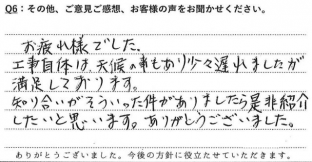 Q6：その他、ご意見ご感想、お客様の声をお聞かせください。
お疲れ様でした。
工事自体は、天候の事もあり少々遅れましたが
満足しております。
知り合いがそういった件がありましたら是非紹介
したいと思います。ありがとうございました。
ありがとうございました。今後の方針に役立たせていただきます。